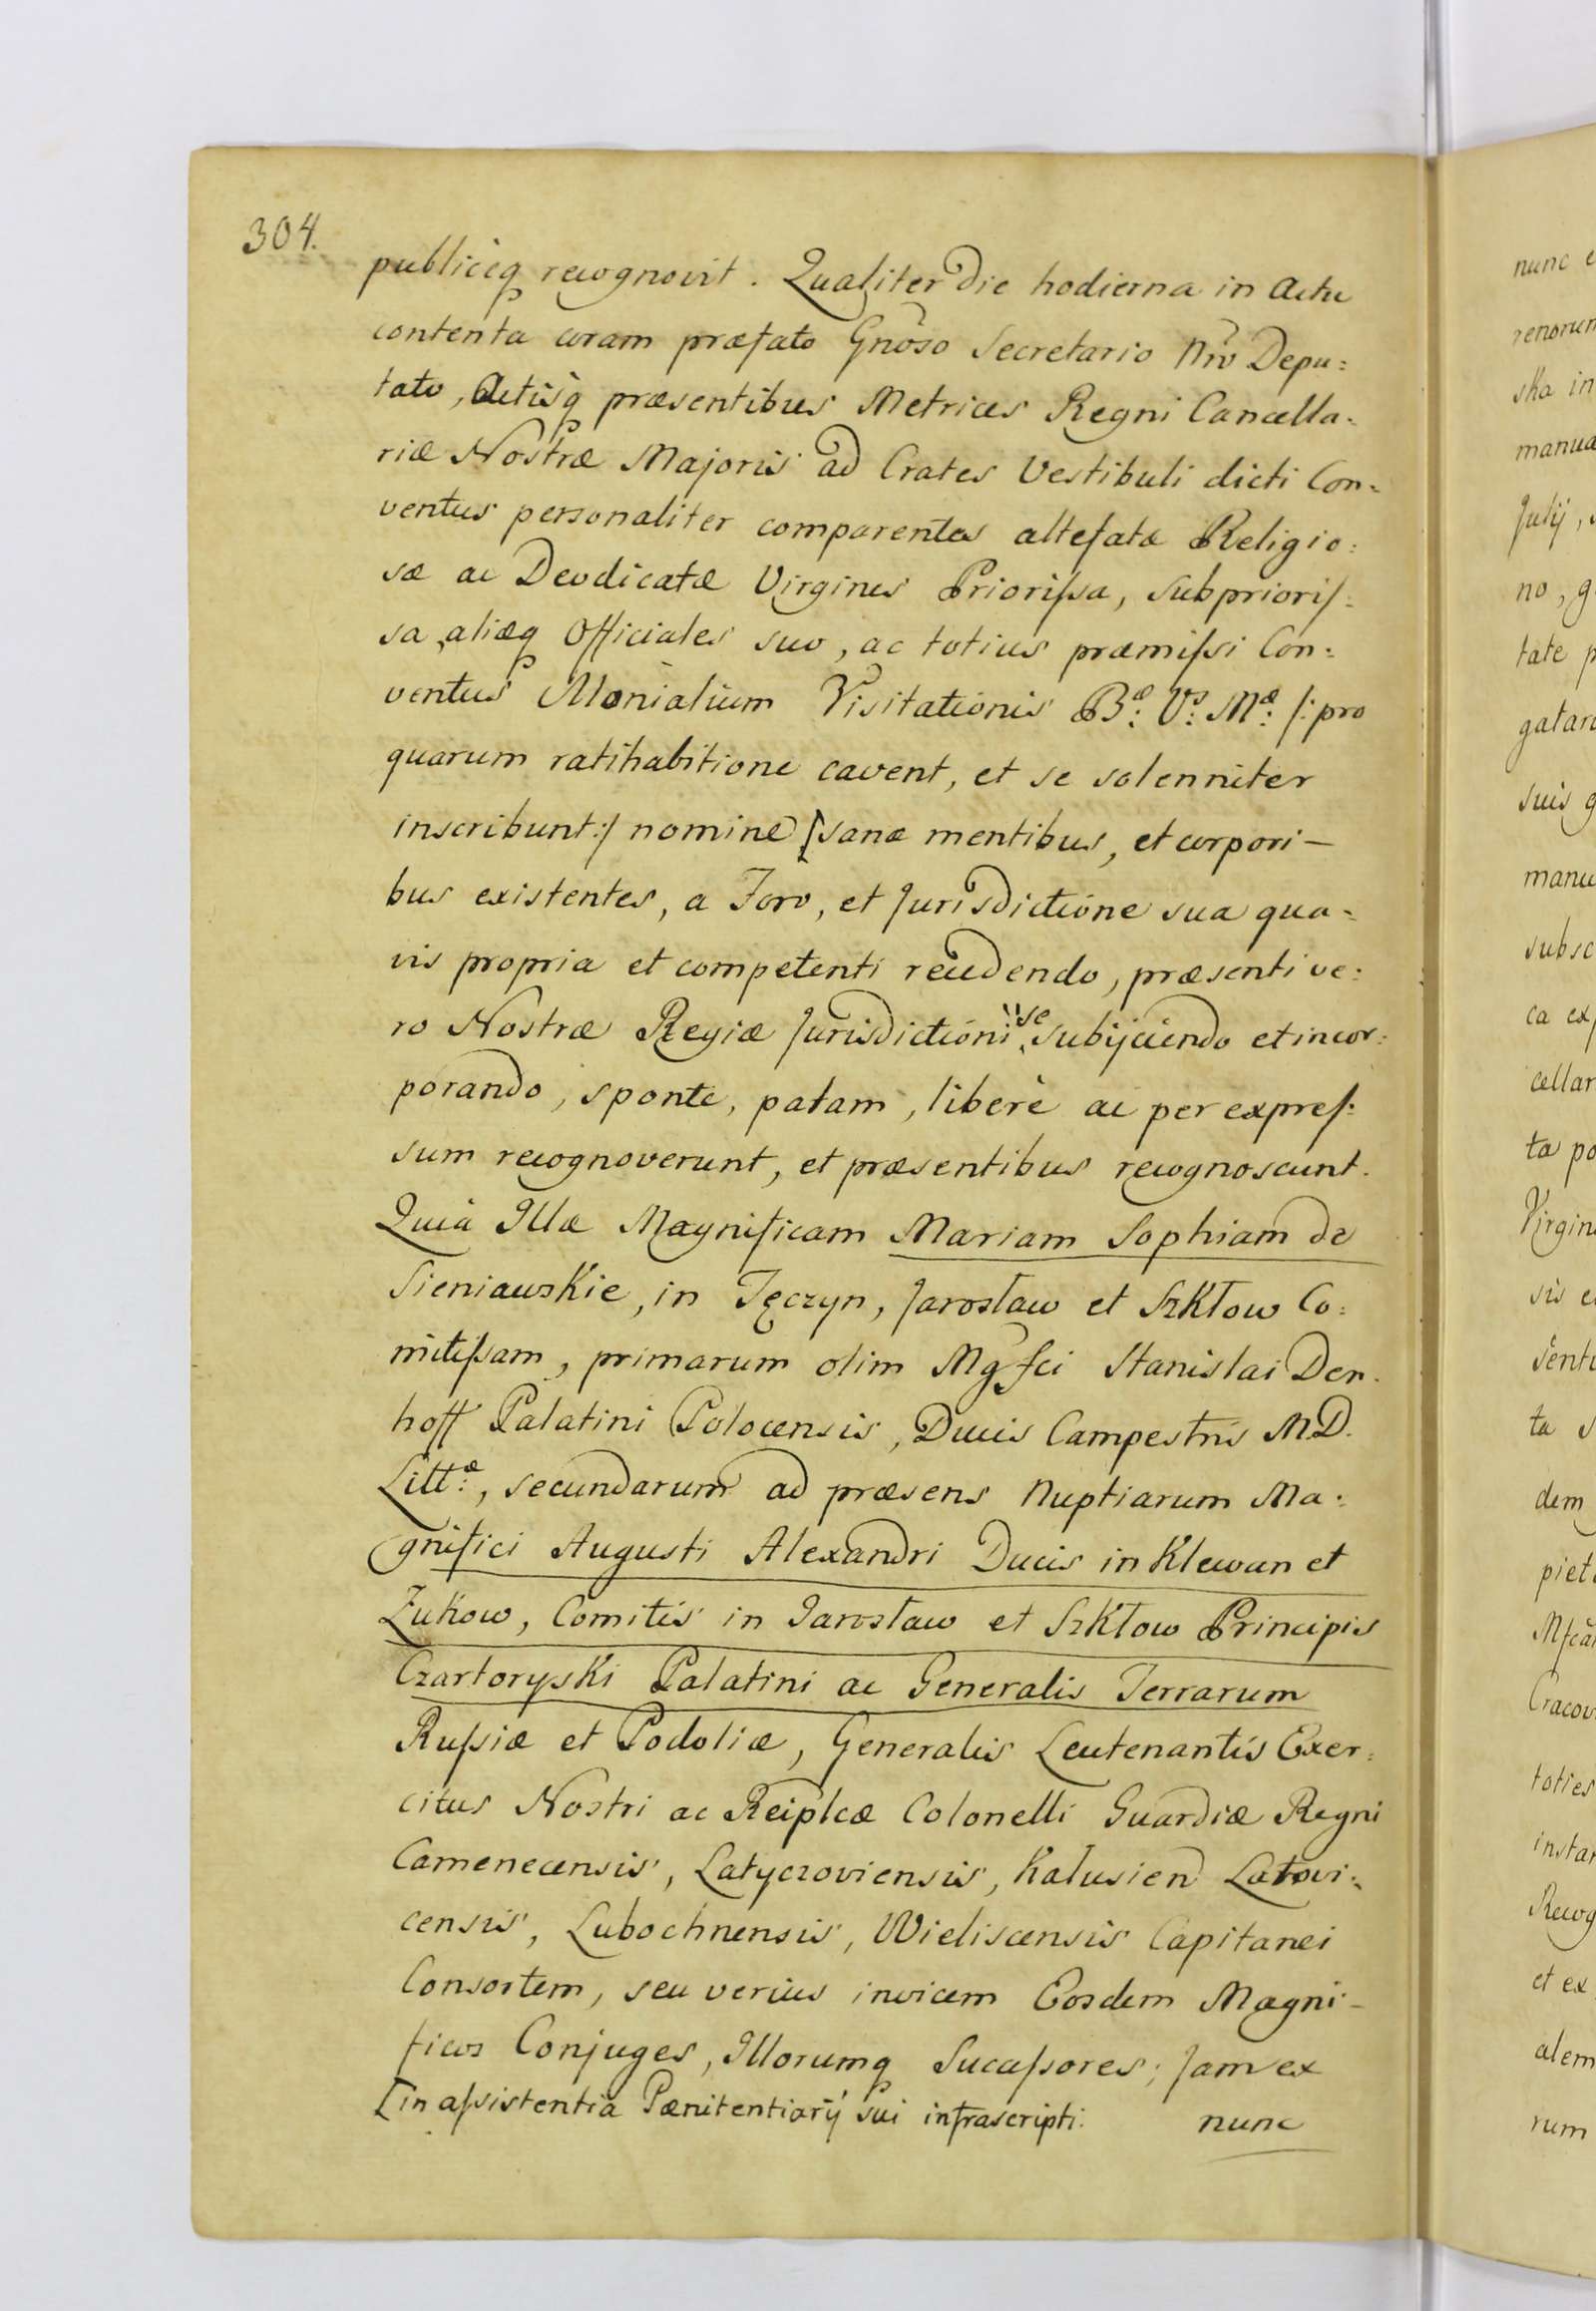 304.
publiceq recognovit. Qualiter die hodierna in Actu
contenta coram præfato Gnoso Secretario Nro Depu=
tato, Actisq præsentibus Metrices Regni Cancella=
riæ Nostræ Majoris ad Crates Vestibuli dicti Con=
ventus personaliter comparentes altefatæ Religio=
sæ ac Deodicatæ Virgines Priorissa, Subprioris=
sa, aliæq Officiales suo, ac totius præmissi Con=
ventus Monialium Visitationis Bæ: Vs: Mæ: /:pro
quarum ratihabitione cavent, et se solenniter
inscribunt:/ nomine [sanæ mentibus, et corpori—
bus existentes, a Foro, et Jurisdictione sua qua=
vis propria et competenti recedendo, præsenti ve=
ro Nostræ Regiæ Jurisdictioni se subijciendo et incor=
porando, sponte, palam, liberè ac per expres=
sum recognoverunt, et præsentibus recognoscunt.
Quià Illæ Magnificam Mariam Sophiam de
Sieniawskie, in Tęczyn, Jarosław et Szkłow Co=
mitissam, primarum olim Mgfci Stanislai Den=
hoff Palatini Polocensis, Ducis Campestris M.D.
Littæ:, secundarum ad præsens Nuptiarum Ma=
gnifici Augusti Alexandri Ducis in Klewan et
Zukow, Comitis in Jarosław et Szkłow Principis
Czartoryski Palatini ac Generalis Terrarum
Russiæ et Podoliæ, Generalis Leutenantis Exer=
citus Nostri ac Reiplcæ Colonelli Guardiæ Regni
Camenecensis, Latyczoviensis, Kalusien Latovi=
censis, Lubochnensis, Wieliscensis Capitanei
Consortem, seu veriùs invicem Eosdem Magni—
ficos Conjuges, Illorumq Sucessores; Jam ex
[in assistentia Pænitentiarij sui infrascripti:
nunc
nunc e
ska in
manua
Julij,
no, g
tate p
suis g
manu
subsc
ca ex
cellar
ta po
Virgin
sis e
senti
ta s
dem
piet
Cracov
toties
instar
Recog
et ex
alem
rum